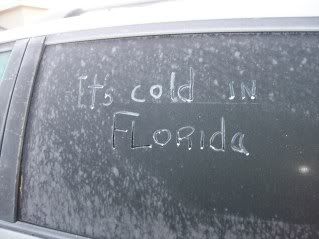 It's cold IN
FLORIda